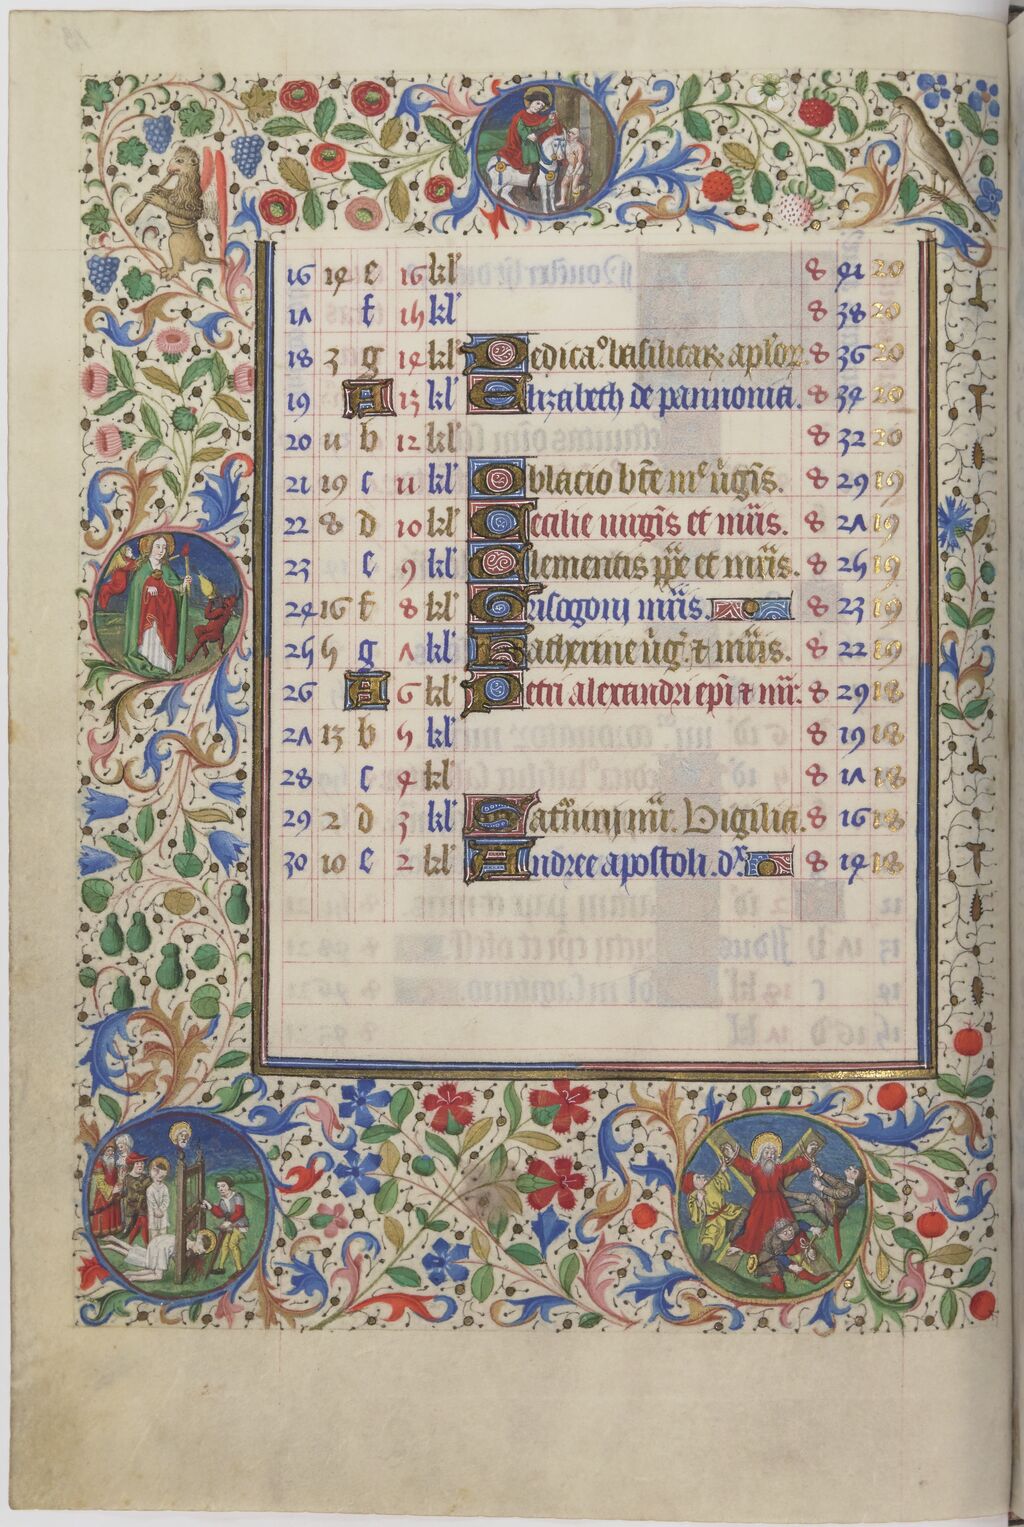 16 14 e 16 kl' 8 41 20
17 f 15 kl' 8 38 20
18 3 g 14 kl' Dedica.º basilicaꝝ aplor̄ 8 36 20
19 A 13 kl' Elizabeth de pannonia. 8 34 20
20 11 b 12 kl' 8 32 20
21 19 c 11 kl' Oblacio btē mē ūgīs. 8 29 19
22 8 d 10 kl' Cecilie uirgīs et mr̄is. 8 27 19
23 e 9 kl' Clementis pp̄e et mr̄is. 8 25 19
24 16 f 8 kl' Crisogoni mr̄is. 8 23 19
25 5 g 7 kl' Katherine ūg. ⁊ mr̄is. 8 22 19
26 A 6 kl' Petri alexandri ep̄i ⁊ mr̄. 8 29 18
27 13 b 5 kl' 8 19 18
28 c 4 kl' 8 17 18
29 2 d 3 kl' Sat'nini mr̄. Vigilia. 8 16 18
30 10 e 2 kl' Andree apostoli. dx̄ 8 14 18